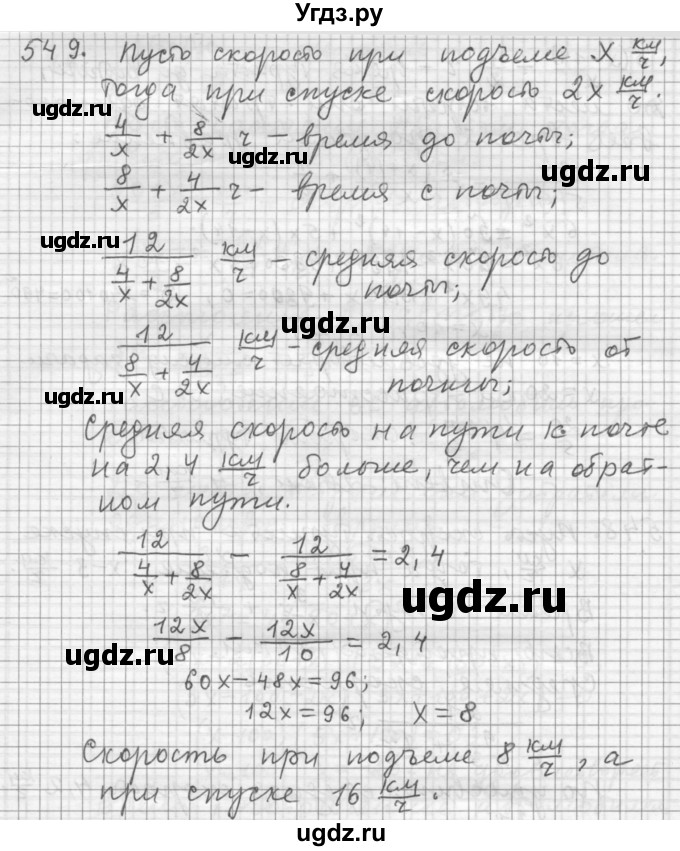 Угдз.ру
549. Пусть скорость при подъеме x км/ч,
тогда при спуске скорость 2x км/ч.
4/x + 8/2x ч – время до почты;
ugdz.ru
ugdz.ru
ugdz.ru
8/x + 4/2x ч – время с почты;
ugdz.ru
12/(4/x + 8/2x) км/ч – средняя скорость до
почты;
ugdz.ru
12/(8/x + 4/2x) км/ч – средняя скорость от
почты;
ugdz.ru
Средняя скорость на пути к почте
на 2,4 км/ч больше, чем на обрат-
ном пути.
12/(4/x + 8/2x) – 12/(8/x + 4/2x) = 2,4
ugdz.ru
12x/8 – 12x/10 = 2,4
ugdz.ru
60x – 48x = 96;
12x = 96; x = 8
Скорость при подъеме 8 км/ч, а
при спуске 16 км/ч.
ugdz.ru